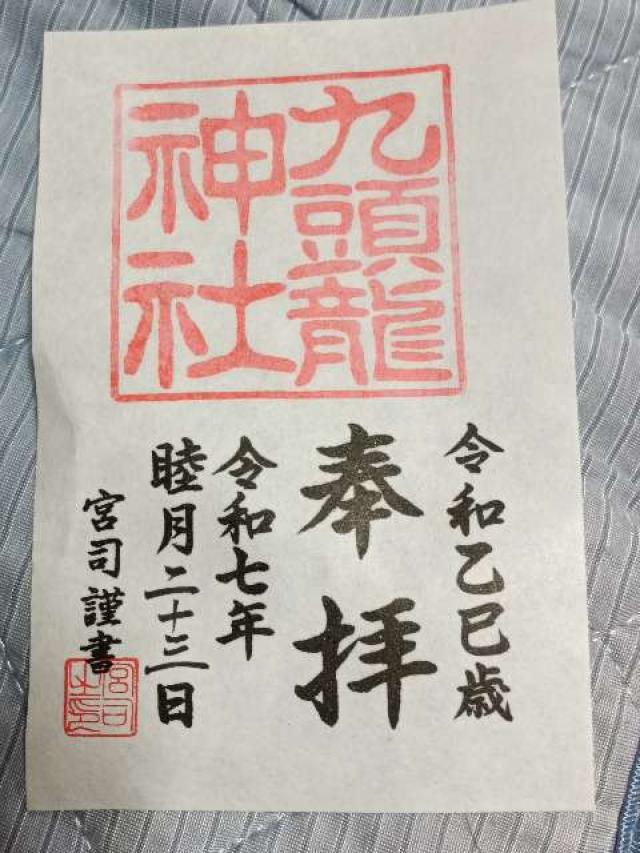 九頭龍
神社
令和乙巳歳
奉拝
令和七年
睦月二十三日
宮司謹書
宮司之印